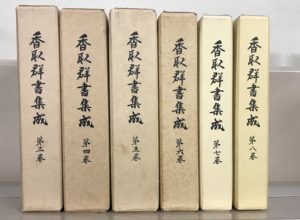 香取群書集成 第三巻
香取群書集成 第四巻
香取群書集成 第五巻
香取群書集成 第六巻
香取群書集成 第七巻
香取群書集成 第八巻